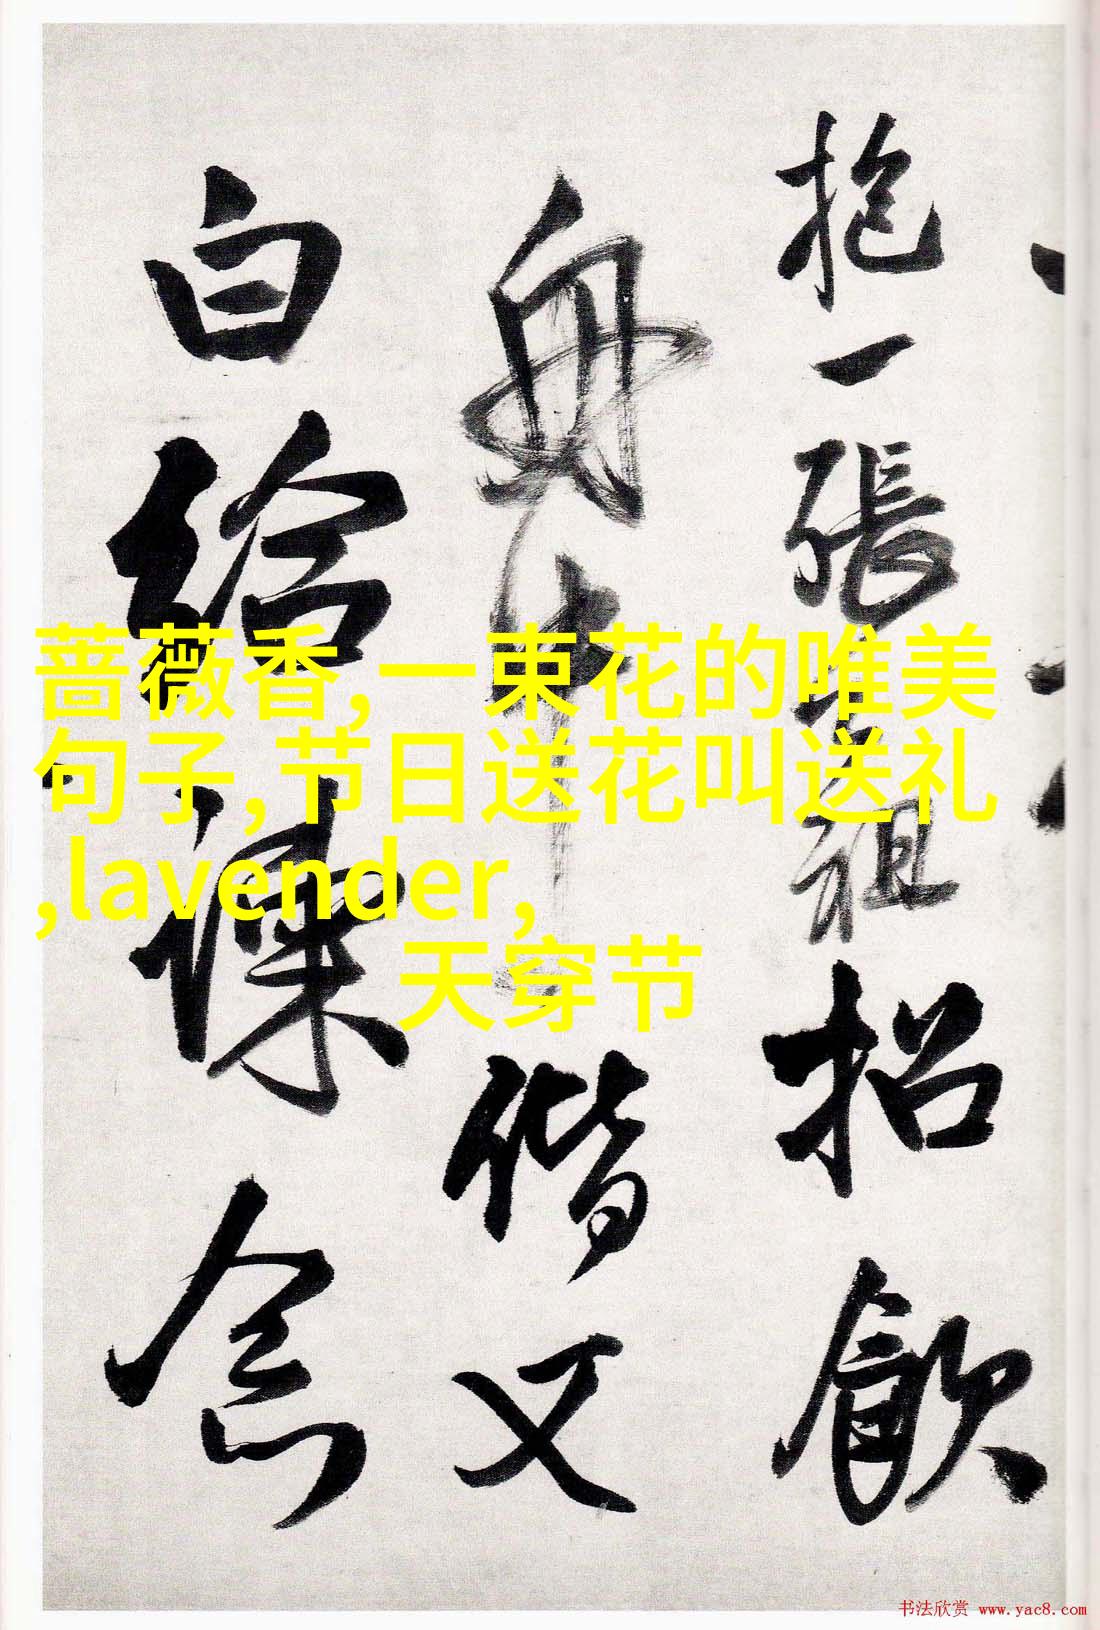 抱一張
祖招飲
舟中
偕又
白給諫念
蔷薇香,一束花的唯美
句子,节日送花叫送礼
,lavender,
天穿节
书法欣赏 www.yac8.com